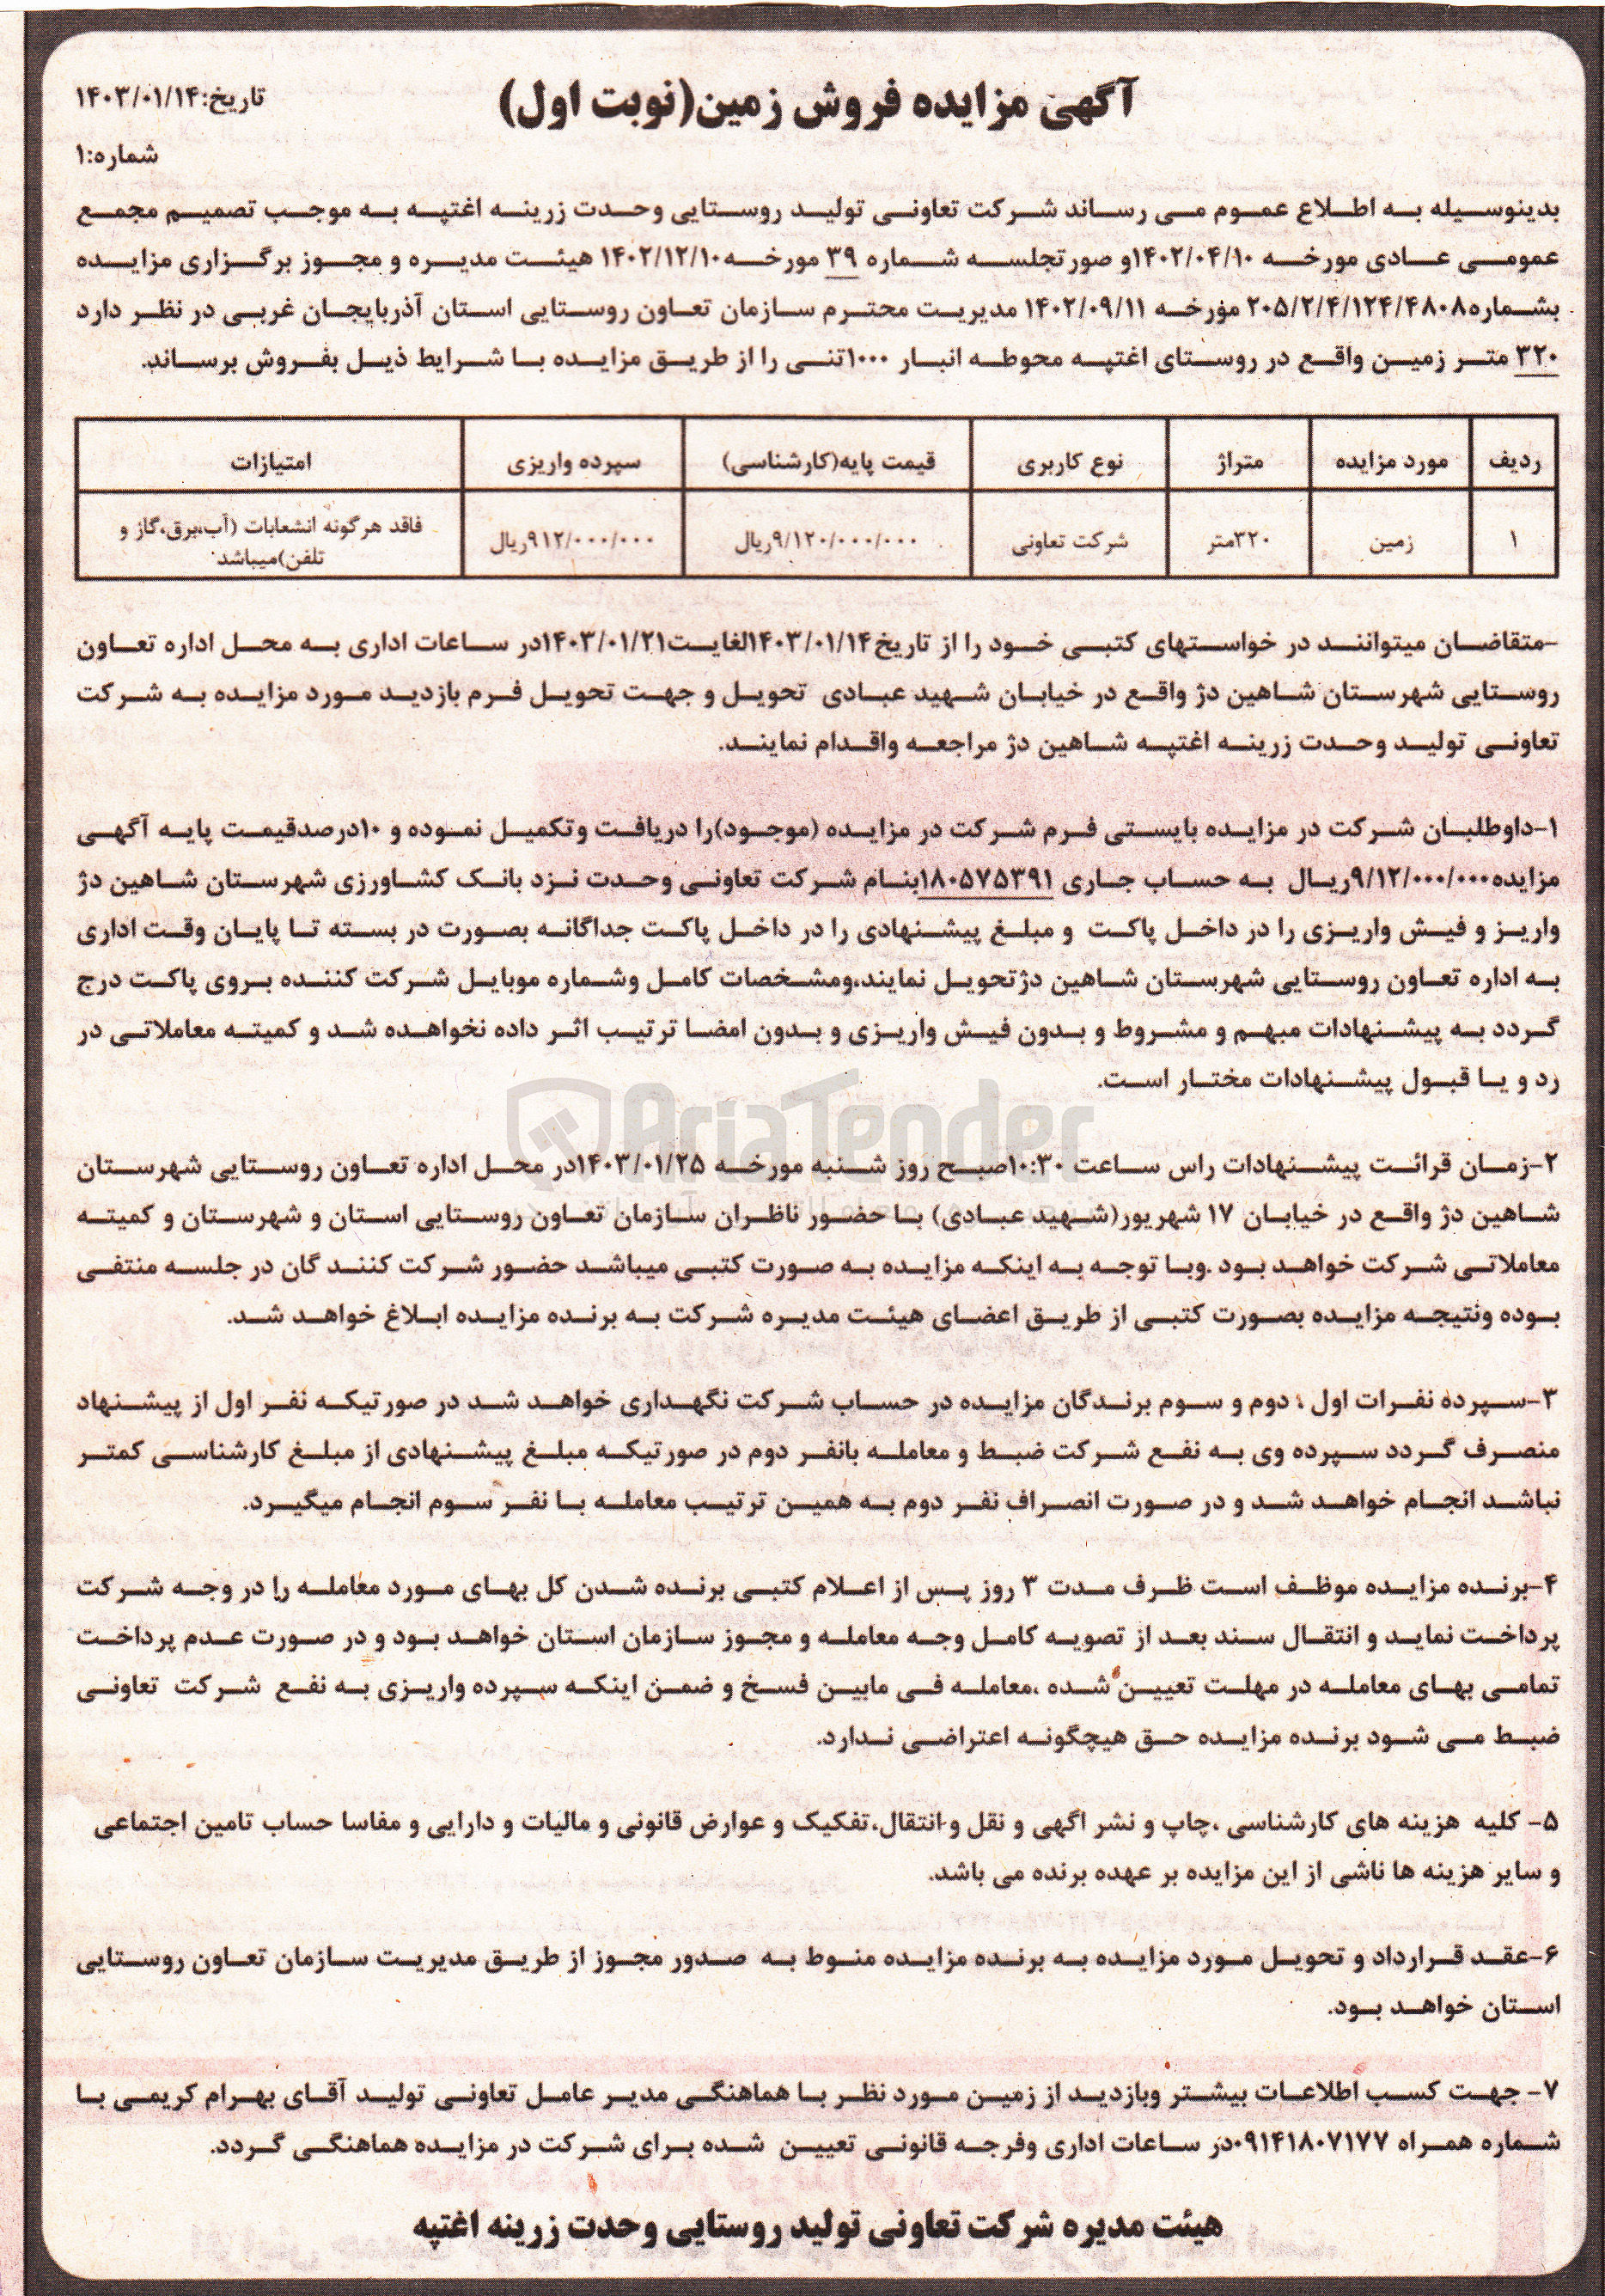 آگهی مزایده فروش زمین(نوبت اول)
تاریخ:۱۴۰۳/۰۱/۱۴
شماره:۱
بدینوسیله به اطلاع عموم می رساند شرکت تعاونی تولید روستایی وحدت زرینه اغتپه به موجب تصمیم مجمع
عمومی عادی مورخه ۱۴۰۲/۰۴/۱۰و صورتجلسه شماره ۳۹ مورخه۱۴۰۲/۱۲/۱۰ هیئت مدیره و مجوز برگزاری مزایده
بشماره۲۰۵/۲/۴/۱۲۴/۴۸۰۸ مورخه ۱۴۰۲/۰۹/۱۱ مدیریت محترم سازمان تعاون روستایی استان آذربایجان غربی در نظر دارد
۳۲۰ متر زمین واقع در روستای اغتپه محوطه انبار ۱۰۰۰تنی را از طریق مزایده با شرایط ذیل بفروش برساند.
ردیف مورد مزایده متراژ نوع کاربری قیمت پایه(کارشناسی) سپرده واریزی امتیازات
۱ زمین ۳۲۰متر شرکت تعاونی ۹/۱۲۰/۰۰۰/۰۰۰ریال ۹۱۲/۰۰۰/۰۰۰ریال فاقد هرگونه انشعابات (آب،برق،گاز و
تلفن)میباشد
-متقاضان میتوانند در خواستهای کتبی خود را از تاریخ۱۴۰۳/۰۱/۱۴لغایت۱۴۰۳/۰۱/۲۱در ساعات اداری به محل اداره تعاون
روستایی شهرستان شاهین دژ واقع در خیابان شهید عبادی تحویل و جهت تحویل فرم بازدید مورد مزایده به شرکت
تعاونی تولید وحدت زرینه اغتپه شاهین دژ مراجعه واقدام نمایند.
۱-داوطلبان شرکت در مزایده بایستی فرم شرکت در مزایده (موجود)را دریافت وتکمیل نموده و ۱۰درصدقیمت پایه آگهی
مزایده۹/۱۲/۰۰۰/۰۰۰ریال به حساب جاری ۱۸۰۵۷۵۳۹۱بنام شرکت تعاونی وحدت نزد بانک کشاورزی شهرستان شاهین دژ
واریز و فیش واریزی را در داخل پاکت و مبلغ پیشنهادی را در داخل پاکت جداگانه بصورت در بسته تا پایان وقت اداری
به اداره تعاون روستایی شهرستان شاهین دژتحویل نمایند،ومشخصات کامل وشماره موبایل شرکت کننده بروی پاکت درج
گردد به پیشنهادات مبهم و مشروط و بدون فیش واریزی و بدون امضا ترتیب اثر داده نخواهده شد و کمیته معاملاتی در
رد و یا قبول پیشنهادات مختار است.
AriaTender
۲-زمان قرائت پیشنهادات راس ساعت ۱۰:۳۰صبح روز شنبه مورخه ۱۴۰۳/۰۱/۲۵در محل اداره تعاون روستایی شهرستان
شاهین دژ واقع در خیابان ۱۷ شهریور(شهید عبادی) با حضور ناظران سازمان تعاون روستایی استان و شهرستان و کمیته
معاملاتی شرکت خواهد بود .وبا توجه به اینکه مزایده به صورت کتبی میباشد حضور شرکت کنند گان در جلسه منتفی
بوده ونتیجه مزایده بصورت کتبی از طریق اعضای هیئت مدیره شرکت به برنده مزایده ابلاغ خواهد شد.
۳-سپرده نفرات اول ؛ دوم و سوم برندگان مزایده در حساب شرکت نگهداری خواهد شد در صورتیکه نفر اول از پیشنهاد
منصرف گردد سپرده وی به نفع شرکت ضبط و معامله بانفر دوم در صورتیکه مبلغ پیشنهادی از مبلغ کارشناسی کمتر
نباشد انجام خواهد شد و در صورت انصراف نفر دوم به همین ترتیب معامله با نفر سوم انجام میگیرد.
۴-برنده مزایده موظف است ظرف مدت ۳ روز پس از اعلام کتبی برنده شدن کل بهای مورد معامله را در وجه شرکت
پرداخت نماید و انتقال سند بعد از تصویه کامل وجه معامله و مجوز سازمان استان خواهد بود و در صورت عدم پرداخت
تمامی بهای معامله در مهلت تعیین شده ،معامله فی مابین فسخ و ضمن اینکه سپرده واریزی به نفع شرکت تعاونی
ضبط می شود برنده مزایده حق هیچگونه اعتراضی ندارد.
۵- کلیه هزینه های کارشناسی ،چاپ و نشر اگهی و نقل و انتقال،تفکیک و عوارض قانونی و مالیات و دارایی و مفاسا حساب تامین اجتماعی
و سایر هزینه ها ناشی از این مزایده بر عهده برنده می باشد.
۶-عقد قرارداد و تحویل مورد مزایده به برنده مزایده منوط به صدور مجوز از طریق مدیریت سازمان تعاون روستایی
استان خواهد بود.
۷- جهت کسب اطلاعات بیشتر وبازدید از زمین مورد نظر با هماهنگی مدیر عامل تعاونی تولید آقای بهرام کریمی با
شماره همراه ۰۹۱۴۱۸۰۷۱۷۷در ساعات اداری وفرجه قانونی تعیین شده برای شرکت در مزایده هماهنگی گردد.
هیئت مدیره شرکت تعاونی تولید روستایی وحدت زرینه اغتپه